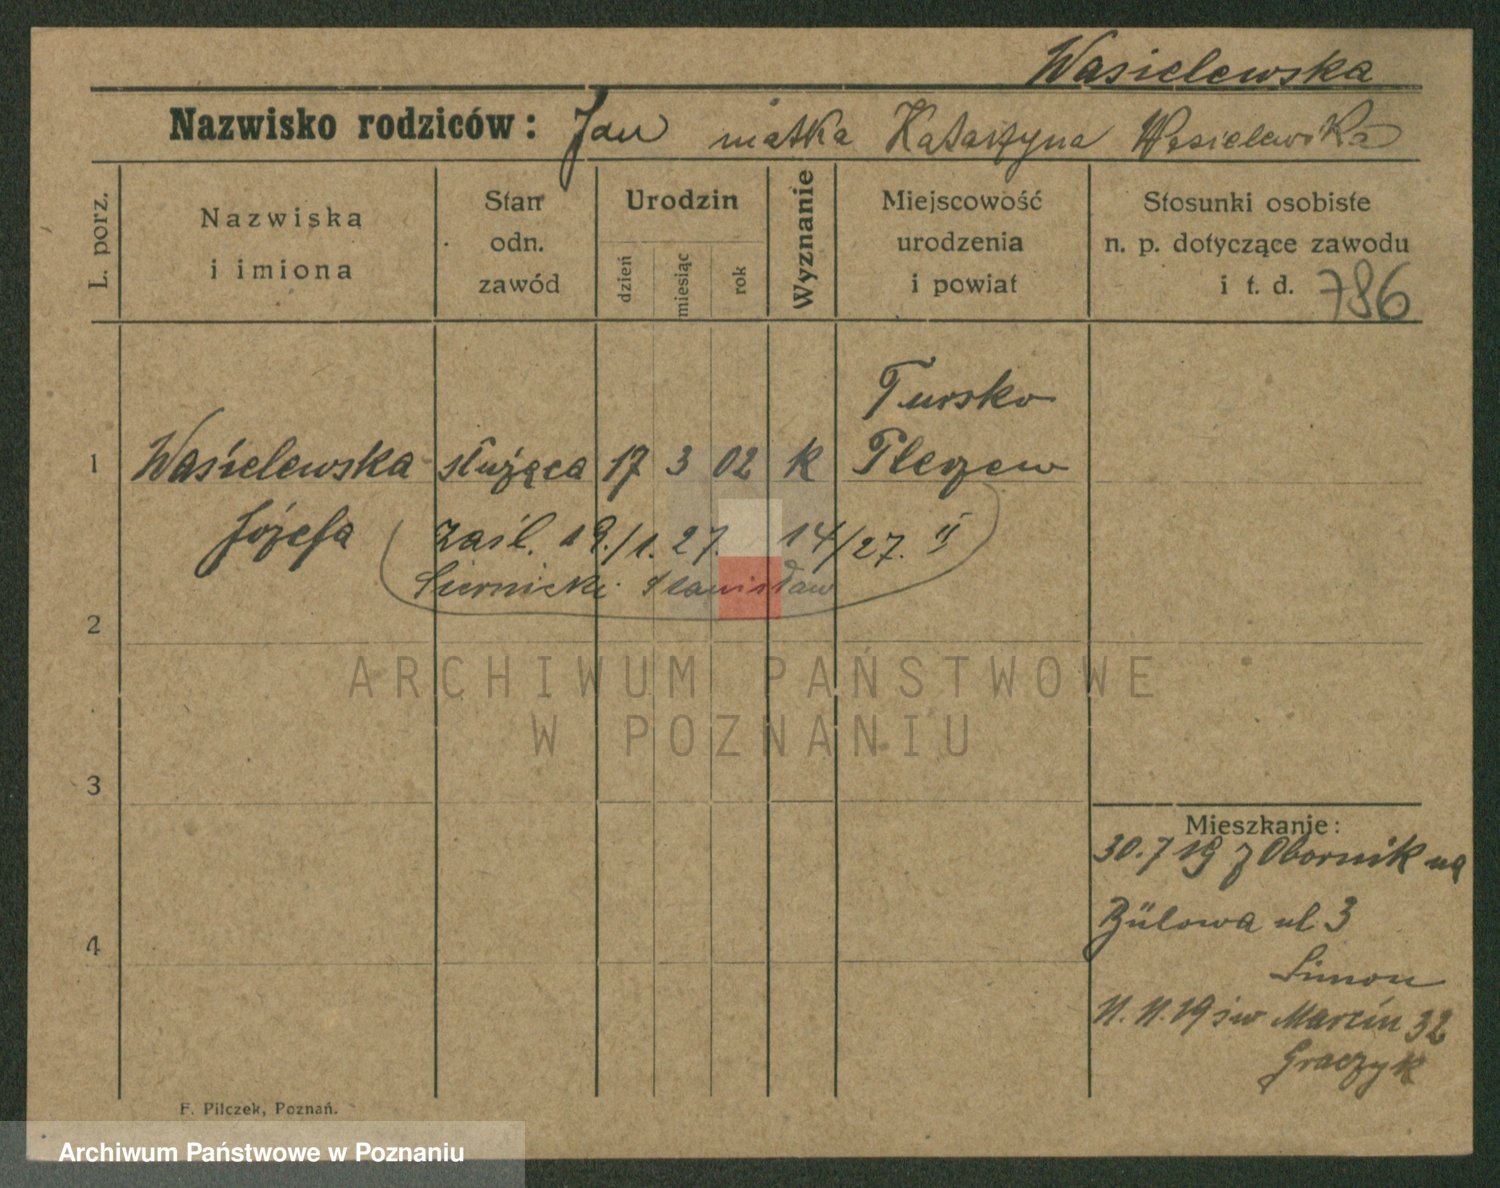 Wasielewska
Nazwisko rodziców: Jan matka Katarzyna Wasielewska
L. porz.
Nazwiska
i imiona
Stan
odn.
zawód
Urodzin
dzień
miesiąc
rok
Wyznanie
Miejscowość
urodzenia
i powiat
Stosunki osobiste
n. p. dotyczące zawodu
i t. d. 786
Tursko
1 Wasielewska służąca 17 3 02 k Pleszew
Józefa zaśl. 19./1. 27. 14/27. II
Siernicki Stanisław
2
ARCHIWUM PAŃSTWOWE
W POZNANIU
3
Mieszkanie:
30.7 19 z Obornik na
Bülowa ul 3
4
Simon
11.11.19 św Marcin 32
Graczyk
F. Pilczek, Poznań.
Archiwum Państwowe w Poznaniu